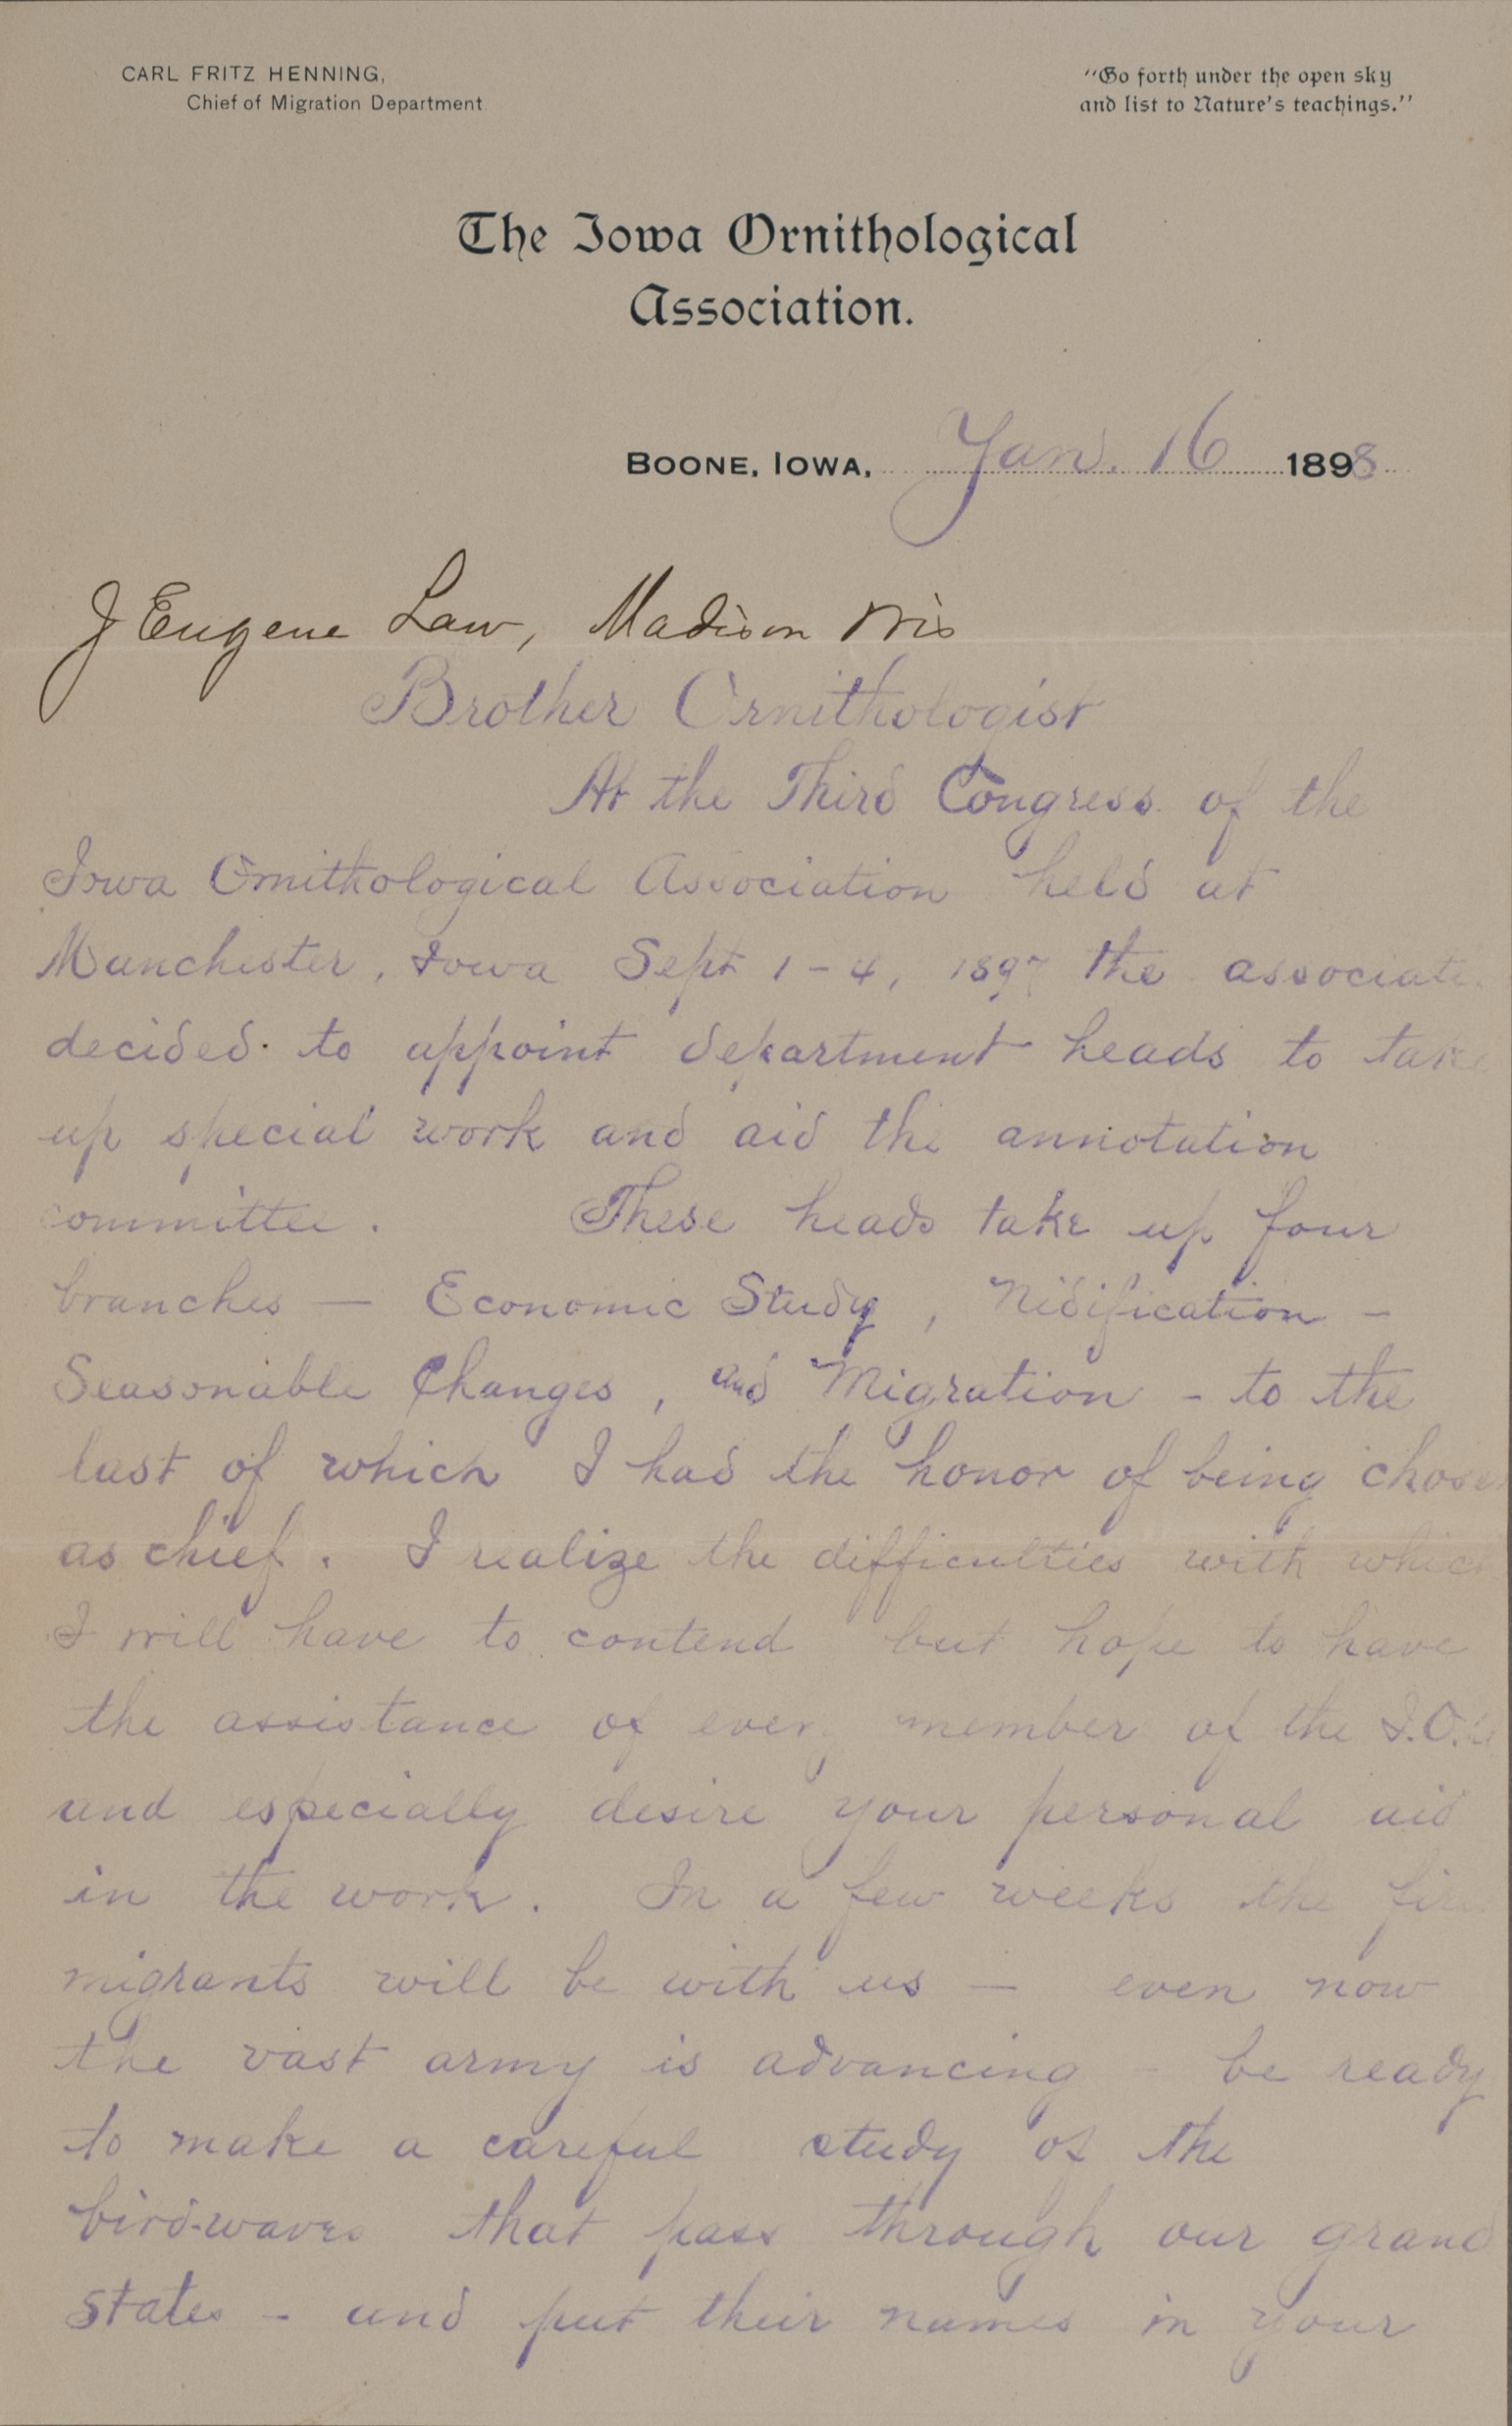 CARL FRITZ HENNING,
Chief of Migration Department.
"Go forth under the open sky
and list to Nature's teachings."
The Iowa Ornithological
Association.
BOONE, IOWA, Jan. 16 1898
J Eugene Law, Madison Wis
Brother Ornithologist
At the Third Congress of the
Iowa Ornithological Association held at
Manchester, Iowa Sept 1-4, 1897 the associati
decided to appoint department heads to take
up special work and aid the annotation
committee. These heads take up four
branches — Economic Study, Nidification -
Seasonable Changes, and Migration - to the
last of which I had the honor of being chosen
as chief. I realize the difficulties with which
I will have to contend but hope to have
the assistance of every member of the I.O.A
and especially desire your personal aid
in the work. In a few weeks the
migrants will be with us — even now
the vast army is advancing - be ready
to make a careful study of the
bird-waves that pass through our grand
states - and put their names in your